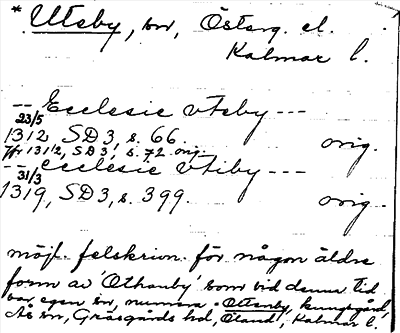 * Utsby, sn, Österg. el.
Kalmar l.
-- Ecclesie vtsby ---
23/5
1312 SD 3, s. 66. orig.
1312, SD 3, s. 72 orig.
-- ecclesie vtiby ---
31/3
1319, SD 3, s. 399. orig.
möjl. felskrivn. för någon äldre
form av 'Othanby' som vid denna tid
var egen sn, numera Ottenby, kungsgård,
Ås sn, Gräsgårds hd, Öland, Kalmar l.